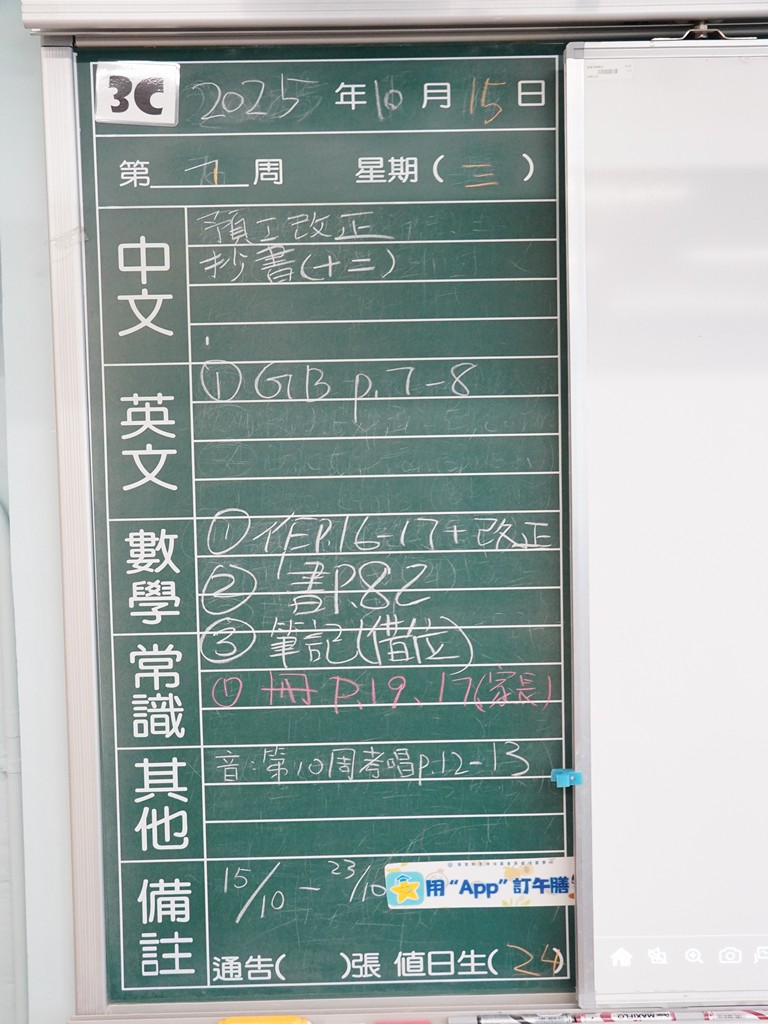 3C 2025 年 10 月 15 日
第 7 周 星期 ( 三 )
中文
預工改正
抄書(十二)
英文
① GB p.7-8
數學
① 作P.16-17+改正
② 書P.82
③ 筆記(借位)
常識
① 冊 P.19、17(家長)
其他
音:第10周考唱p.12-13
備註
15/10 - 23/10
用 “App” 訂午膳
通告( )張 值日生( 24 )